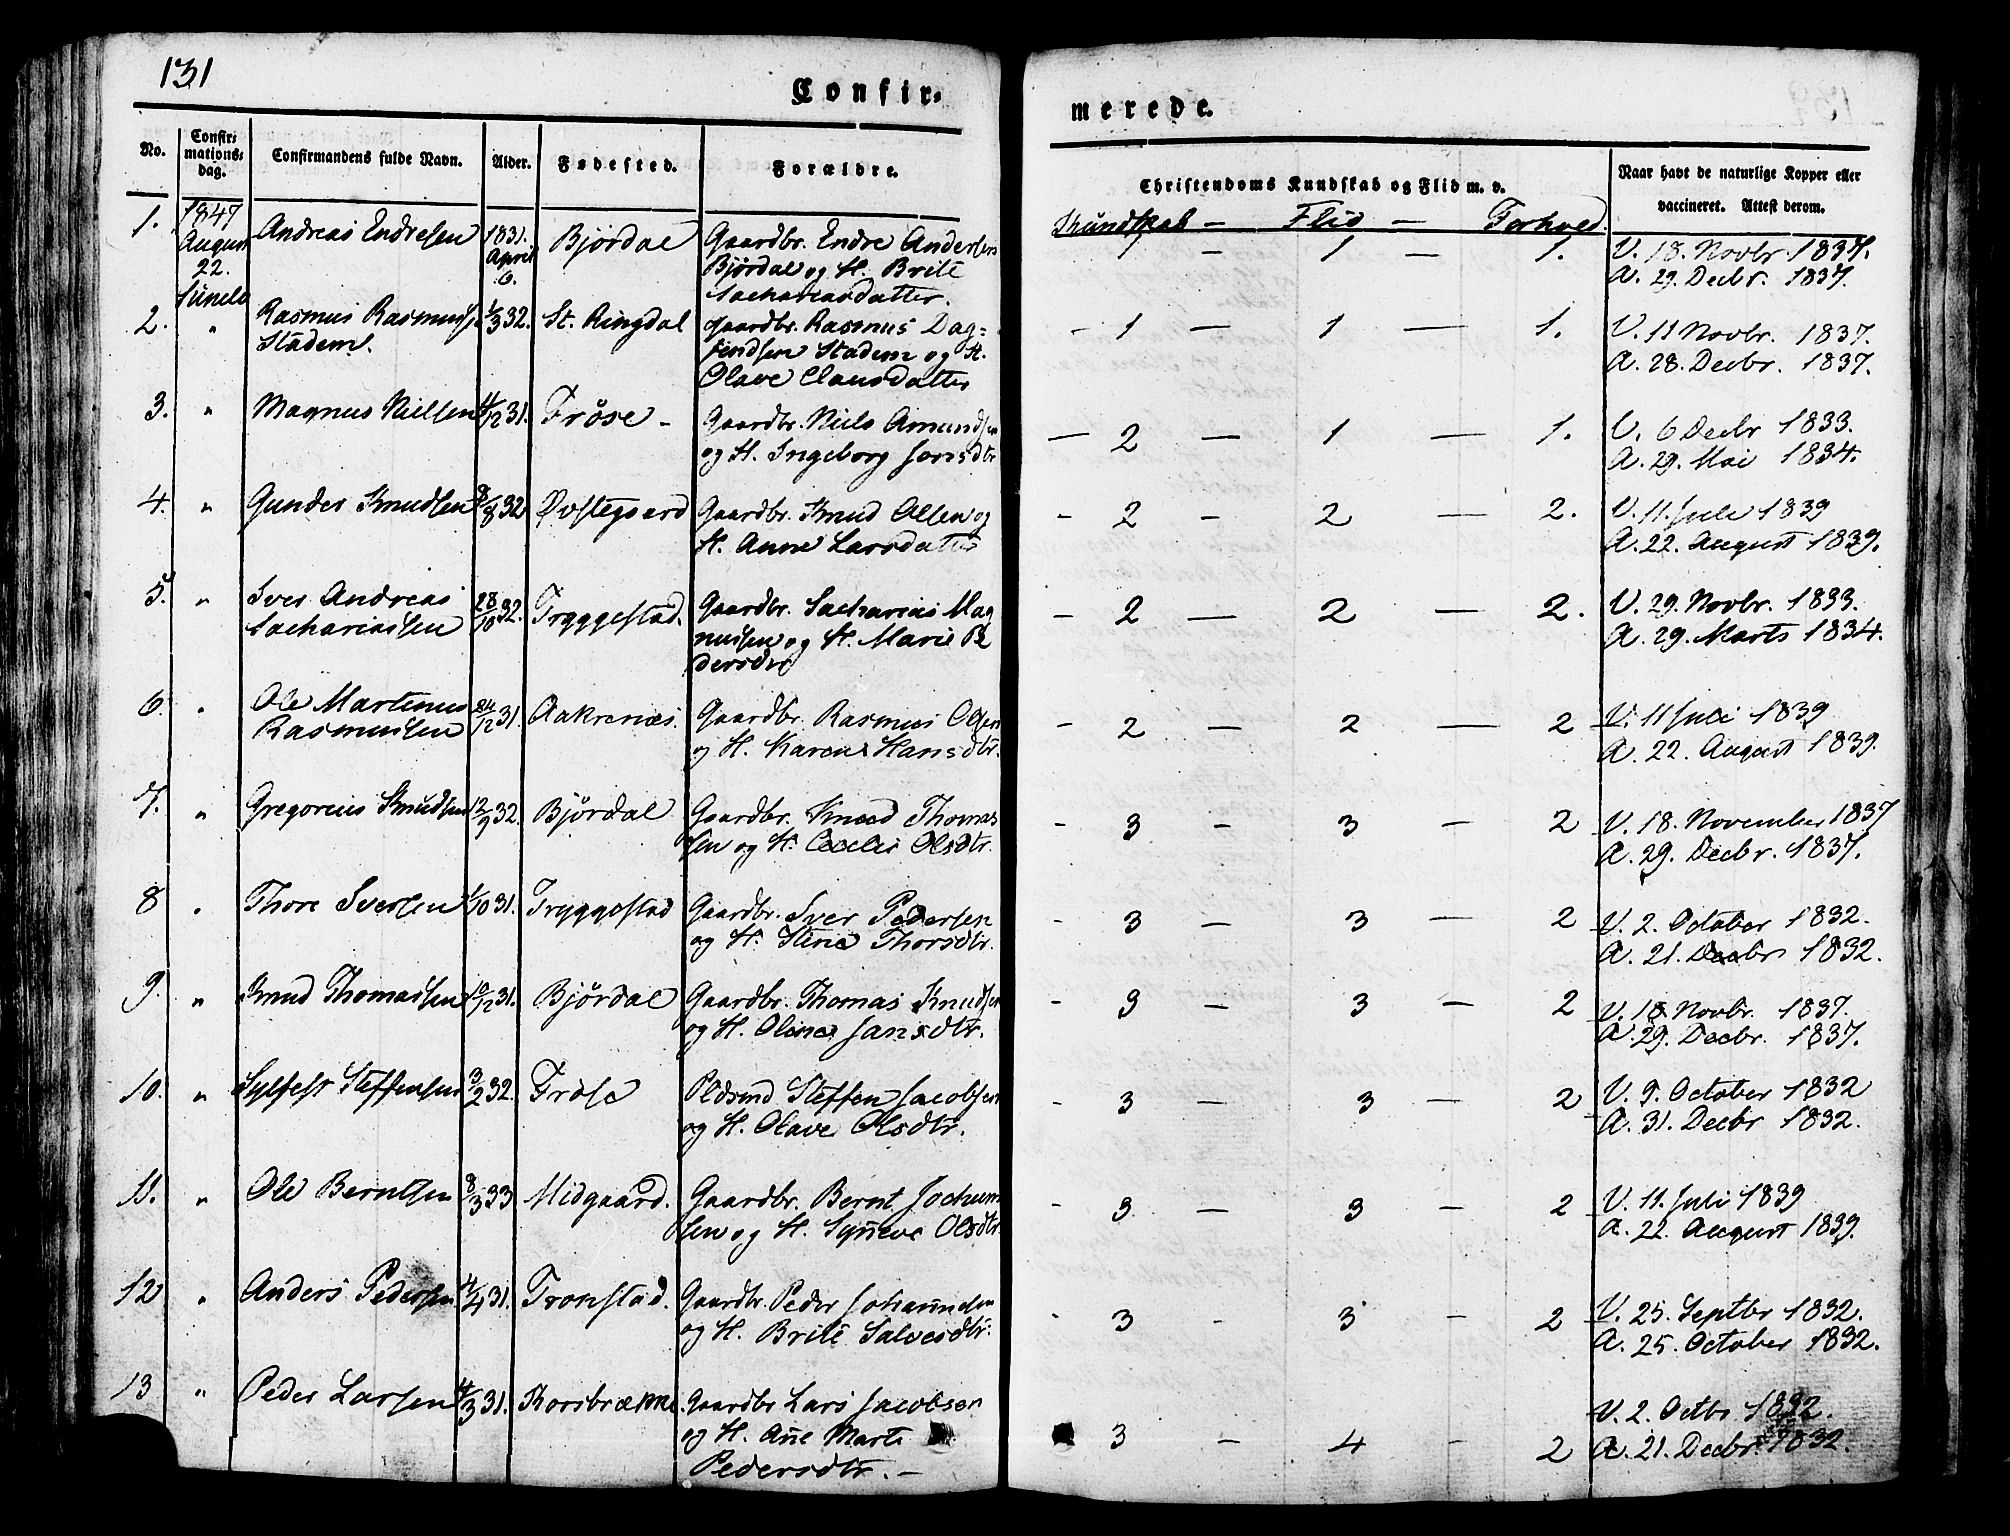 131
Confir-
merede.
No.
Confir-
mations-
dag.
Confirmandens fulde Navn.
Alder.
Fødested.
Forældre.
Christendoms Kundskab og Flid m. v.
Naar havt de naturlige Kopper eller
vaccineret. Attest derom.
Kundskab - Flid - Forhold.
1. 1847 August 22. Sunelv
Andreas Endresen 1831. April 6. Bjørdal
Gaardbr. Endre Andersen
Bjørdal og H. Brite
Sachariasdatter.
1 - 1 - 1.
V. 18. Novbr 1837.
A. 29. Decbr. 1837.
2. " Rasmus Rasmussen
Stadem. 1/3 32. St. Ringdal
Gaardbr. Rasmus Dag-
findsen Stadem og H.
Olave Clausdatter
- 1 - 1 - 1.
V. 11 Novbr. 1837.
A. 28. Decbr. 1837.
3. " Magnus Nielsen 11/12 31. Frøse -
Gaardbr. Niels Amundsen
og H. Ingeborg Jonsdtr
- 2 - 1 - 1.
V. 6 Decbr 1833.
A. 29. Mai 1834.
4. " Gunder Knudsen 9/8 32 Øvstegaard
Gaardbr. Knud Olsen og
H. Anne Larsdatter
- 2 - 2 - 2.
V. 11. Juli 1839
A. 22. August 1839.
5. " Iver Andreas
Sachariassen 28/10 32. Tryggestad.
Gaardbr. Sacharias Mag
nussen og H. Marie Pe
dersdtr
- 2 - 2 - 2.
V. 29. Novbr. 1833.
A. 29. Marts 1834.
6. " Ole Martinus
Rasmussen 24/12 31. Aakrenæs.
Gaardbr. Rasmus Olsen
og H. Karen Hansdtr.
- 2 - 2 - 2
V. 11 Juli 1839
A. 22. August 1839.
7. " Gregorius Knudsen 12/9 32. Bjørdal
Gaardbr. Knud Thomas
sen og H. Cecelie Olsdtr.
- 3 - 3 - 2
V. 18. November 1837
A. 29. Decbr. 1837.
8 " Thore Iversen 1/10 31. Tryggestad
Gaardbr. Iver Pedersen
og H. Stine Thorsdtr.
- 3 - 3 - 2
V. 2. October 1832.
A. 21. Decbr 1832.
9. " Knud Thomassen 10/12 31. Bjørdal
Gaardbr. Thomas Knudsen
og H. Oline Jansdtr.
- 3 - 3 - 2
V. 18. Novbr. 1837.
A. 29. Decbr. 1837.
10. " Sylfest Steffensen 3/2 32. Frøse
Pldsmd Steffen Jacobsen
og H. Olave Olsdtr.
- 3 - 3 - 2
V. 9. October 1832
A. 31. Decbr 1832.
11. " Ole Berntsen 8/3 33 Midgaard.
Gaardbr. Bernt Jochum
sen og H. Synneve Olsdtr
- 3 - 3 - 2
V. 11. Juli 1839
A. 22. August 1839.
12 " Anders Pedersen 11/4 31. Tronstad.
Gaardbr. Peder Johannesen
og H. Brite Salvesdtr.
- 3 - 3 - 2
V. 25. Septbr 1832.
A. 25. October 1832.
13 " Peder Larsen 4/3 31. Korsbrække.
Gaardbr Lars Jacobsen
og H. Ane Marte
Pedersdtr. -
3 - 4 - 2
V. 2. Octbr 1832.
A. 21. Decbr. 1832.